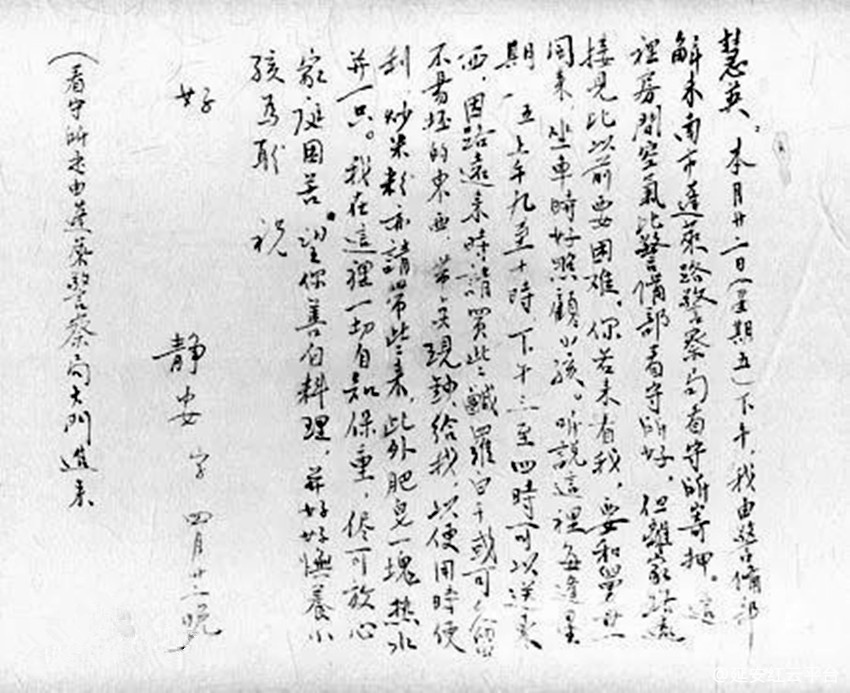 慧英：本月廿二日（星期五）下午，我由警備部
解来南市蓬萊路警察局看守所寄押。這
裡房間空氣比警備部看守所好，但離家路遠
接見比以前要困难。你若来看我，要和勞世
同来，坐車時好照顧小孩。听説這裡每逢星
期一、五上午九至十時下午三至四時可以送東
西，因路遠来時請買些鹹羅白干或可久留
不易坏的東西，帶点現鈔給我，以便用時便
利，炒米粉亦請帶些来，此外肥皂一塊热水
并一只。我在這裡一切自知保重，侭可放心
家庭困苦。望你善自料理，并好好撫養小
孩为盼 祝
好
静安 字 四月廿三晚
（看守所在由蓬萊警察局大門進来